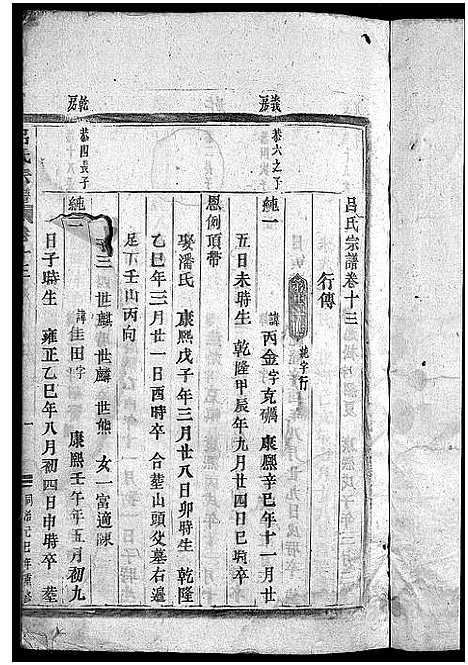 呂氏宗譜卷十三
行傳
純字行
義房
恭六之子
純一 諱丙金字克礪 康熙辛巳年十一月廿
五日未時生 乾隆甲辰年九月廿四日巳時卒
恩例頂帶
娶潘氏 康熙戊子年三月廿八日卯時生 乾隆
乙巳年三月廿一日酉時卒 合塟山頭父墓右邊
尼丁壬山丙向
三 世麒 世麟 世熊 女一富適陳
乾房
恭四長子
純一 諱佳田字 康熙壬午年五月初九
日子時生 雍正乙巳年八月初四日申時卒 塟
呂氏宗譜
卷十三
一
同治元